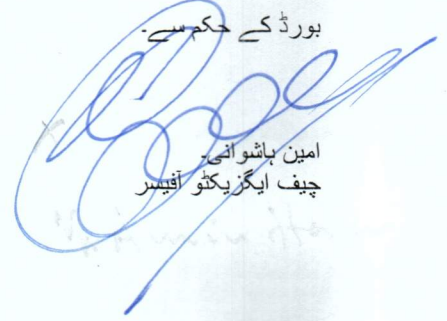 بورڈ کے حکم سے۔
امین ہاشوانی۔
چیف ایگزیکٹو آفیسر